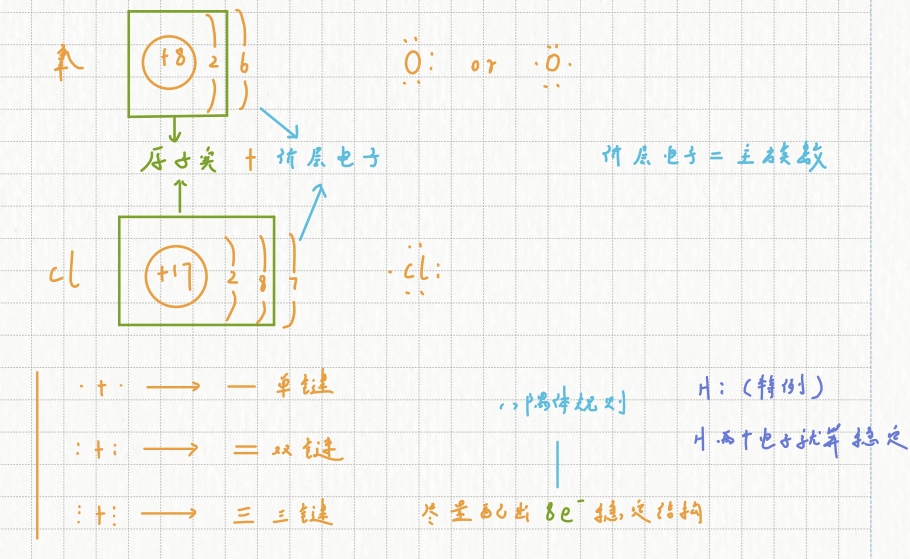 氧 +8 2 6 O or O
原子实 + 价层电子 价层电子 = 主族数
cl +17 2 8 7 cl
· + · → — 单键
: + : → = 双键
⋮ + ⋮ → 三 三键
八隅体规则
尽量配出 8e⁻ 稳定结构
H: (特例)
H 两个电子就算稳定